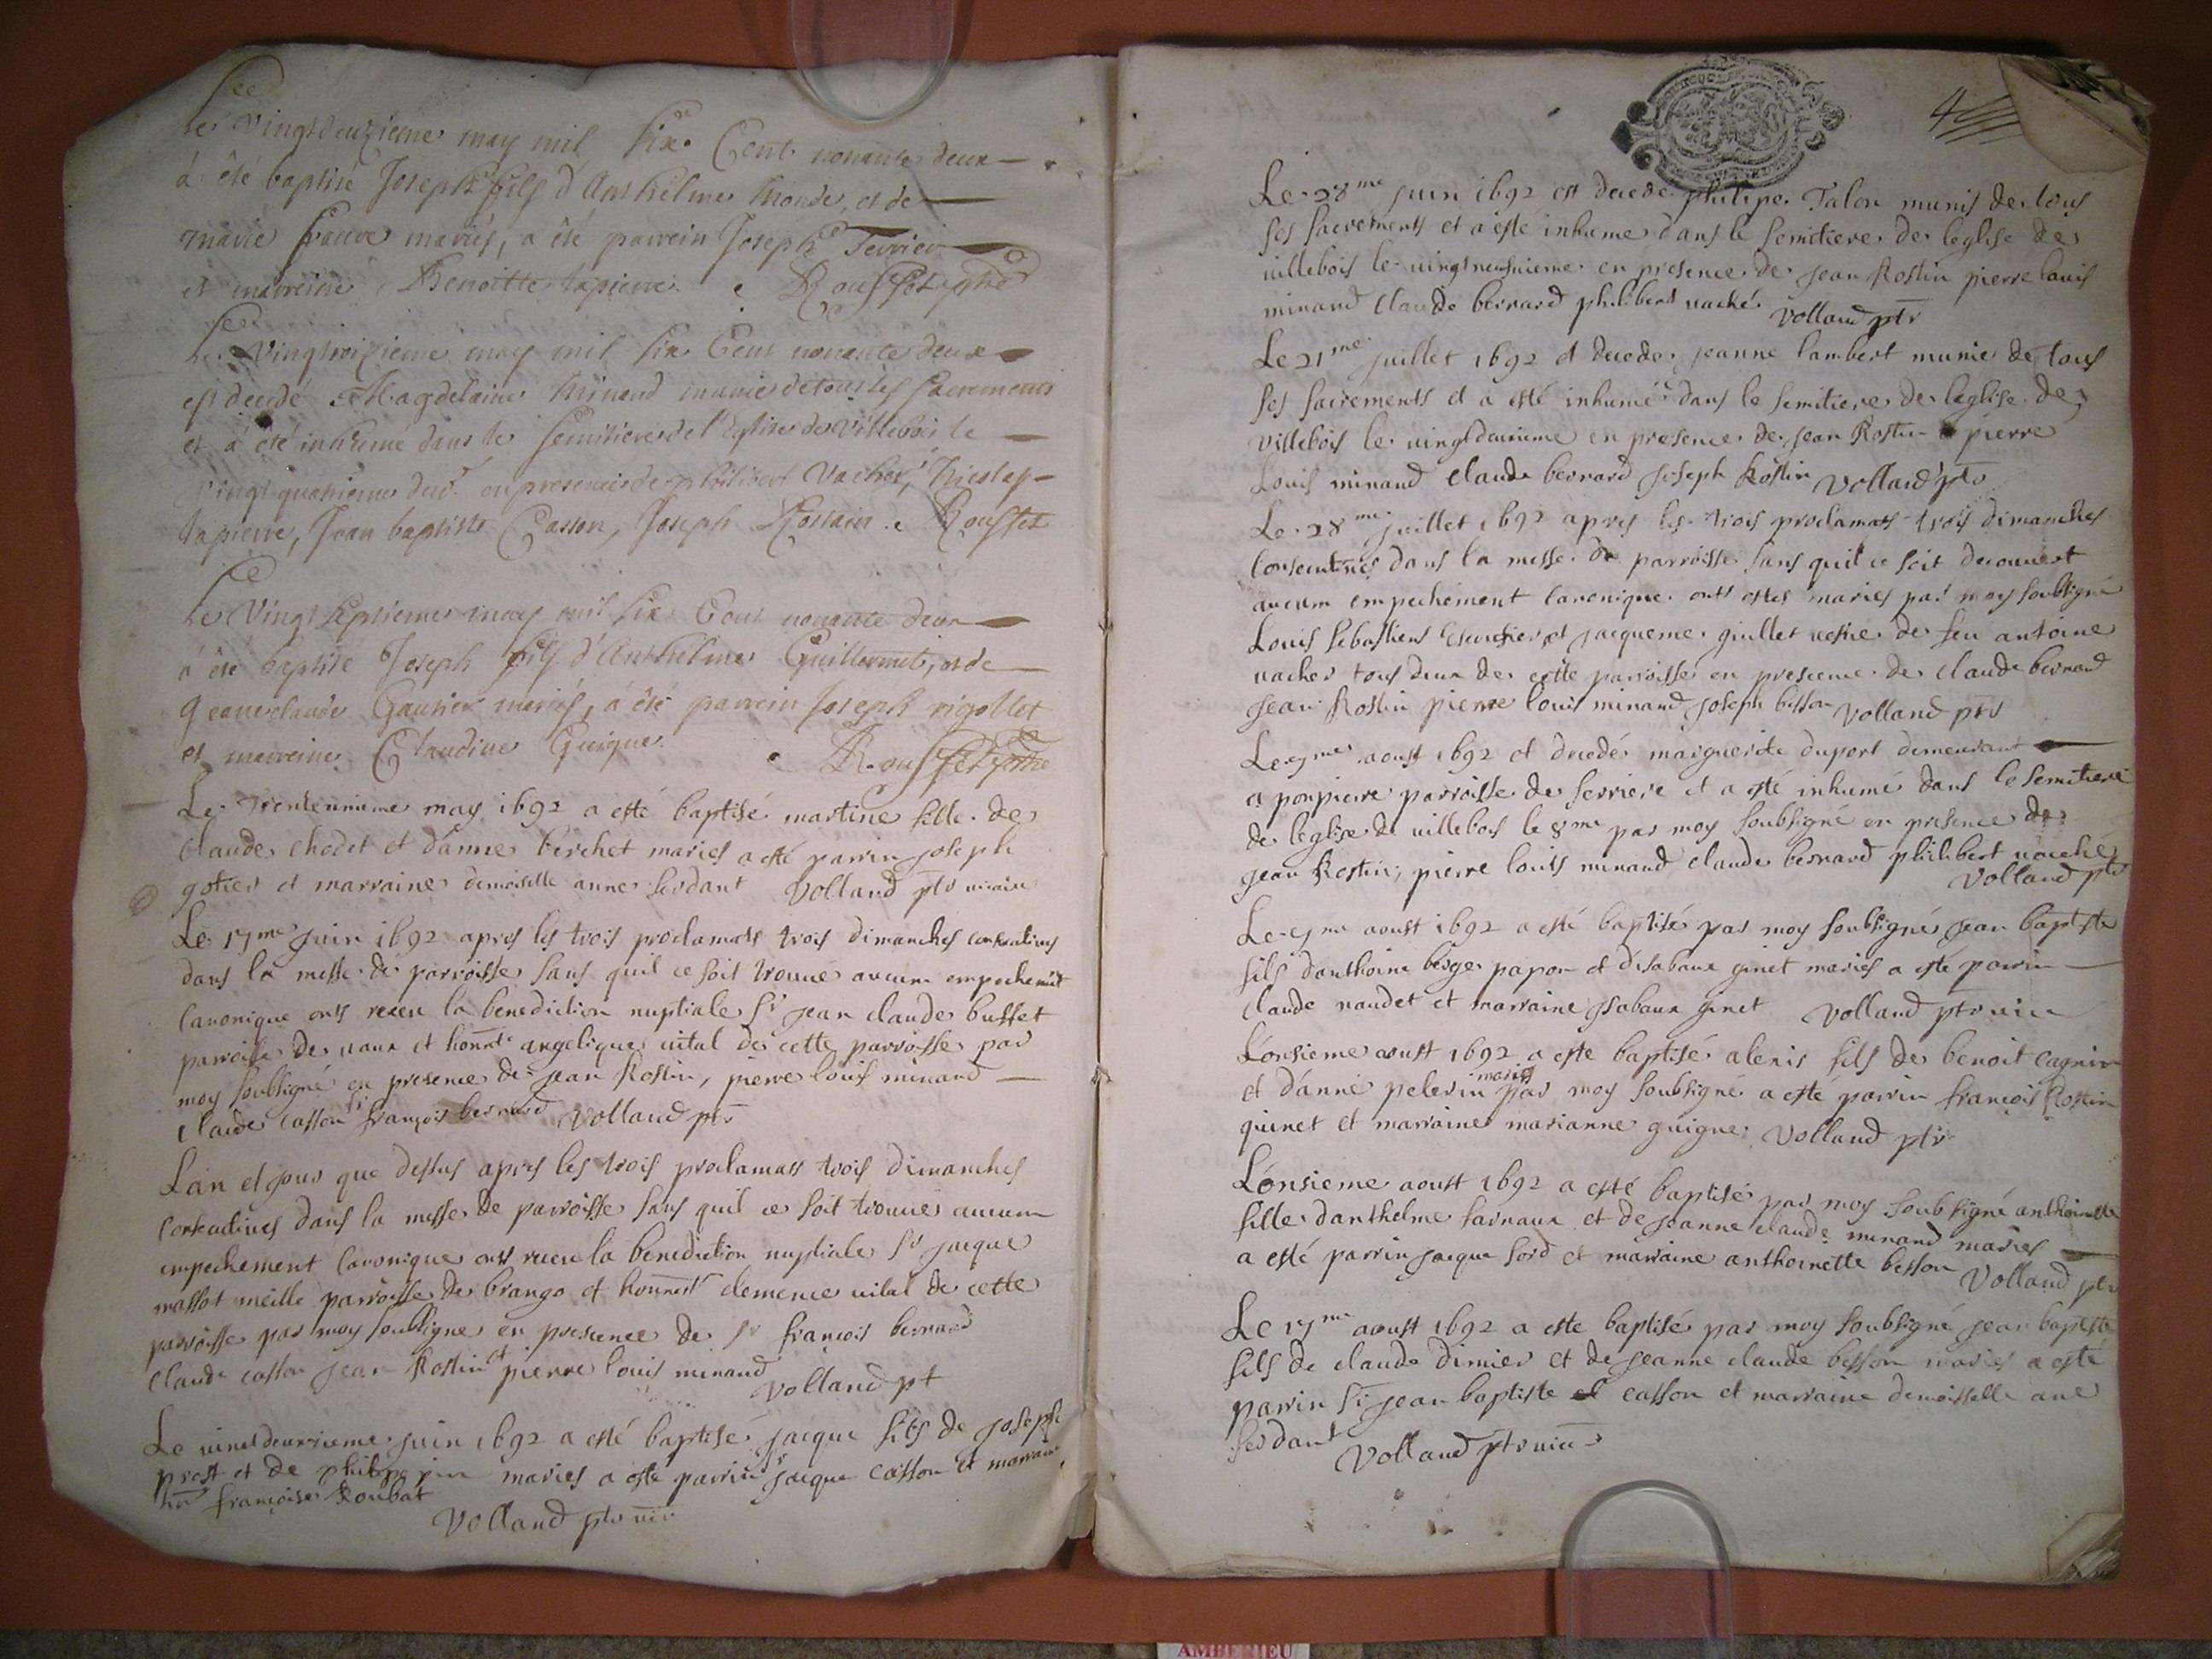 Le Vingtdeuzieme may mil six Cent nonante deux
à été baptisé Joseph fils d'Anthelme et de
marie mariés, a été parrein Joseph Terrier
et marreine Benoitte lapierre Rousset ptre
Le Vingtroizieme may mil six Cent nonante deux
est decedé Magdelaine Minand munie de tous les sacrements
et à été inhumé dans le semitiere de l'Eglise de Villebois le
Vingt quatrieme dud. en presence de philibert Vacher,
lapierre, Jean baptiste Casson, Joseph Rostain Rousset
Le Vingt septieme may mil six Cent nonante deux
à été baptisé Joseph fils d'Anthelme Guillermet, et de
Jeanne claude Gautier mariés, à été parrein Joseph rigollet
et marreine Claudine Guigue Rousset ptre
Le trenteunieme may 1692 a esté baptisé martine fille de
claude chodet et d'anne berchet mariés a esté parrin joseph
gotier et marraine demoiselle anne serdant Volland ptr vicaire
Le 17me juin 1692 apres les trois proclamats trois dimanches consecutives
dans la messe de parroisse sans quil ce soit trouué aucun empechemt
canonique onts receu la benediction nuptiale sr jean claude buffet
parroisse de uaux et honnte angelique uital de cette parroisse par
moy soubsigné en presence de jean Rostin, pierre louis minand
claude casson sr françois bernard Volland ptr
L'an et jour que dessus apres les trois proclamats trois dimanches
consecutives dans la messe de parroisse sans quil ce soit trouué aucun
empechement canonique onts receu la benediction nuptiale sr jacque
massot meille parroisse de brango et honnest clemence uital de cette
parroisse par moy soubsigne en presence de sr françois bernard
claude casson jean Rostin et pierre louis minand Volland pt
Le uint deuxieme juin 1692 a esté baptisé jacque fils de joseph
prost et de mariés a esté parrin sr jacque casson et marraine
hon françoise Roubat Volland ptr uic
4
Le 28me juin 1692 est decedé philipe Talon munis de tous
ses sacrements et a esté inhumé dans le semitiere de leglise de
uillebois le uingtneufuieme en presence de jean Rostin pierre louis
minand claude bernard philibert uaché Volland ptr
Le 21me juillet 1692 et decede jeanne lambert munie de tous
ses sacrements et a esté inhumé dans le semitiere de leglise de
villebois le uingtdeuxieme en presence de jean Rostin pierre
Louis minand claude bernard joseph Rostin Volland ptr
Le 28me juillet 1692 apres les trois proclamats trois dimanches
consecutives dans la messe de parroisse sans quil ce soit decouuert
aucum empechement canonique onts estes mariés par moy soubsigné
Louis sebastiens et jacqueme giullet uefue de feu antoine
uacher tous deux de cette parroisse en presence de claude bernard
jean Rostin pierre louis minand joseph Volland ptr
Le 7me aoust 1692 et decedé marguerite duport demeurant
a ponpierre parroisse de serriere et a esté inhumé dans le semitiere
de leglise de uillebois le 8me par moy soubsigné en presence de
jean Rostin, pierre louis minand claude bernard philibert uaché
Volland ptr
Le 9me aoust 1692 a esté baptisé par moy soubsigné jean baptiste
fils danthoine berge papon et disabaux ginet mariés a esté parrin
claude naudet et marraine jsabaux ginet Volland ptr uica
Lonsieme aoust 1692 a este baptisé alexis fils de benoit cagnin
et d'anne pelerin mariés par moy soubsigné a esté parrin françois Rostin
quinet et marraine marianne guigue Volland ptr
Lonsieme aoust 1692 a esté baptisé par moy soubsigné anthoinette
fille danthelme sarnaux et de jeanne claude minand mariés
a esté parrin jacque sord et marraine anthoinette besson Volland ptr
Le 17me aoust 1692 a este baptisé par moy soubsigné jean baptiste
fils de claude dimier et de jeanne claude besson mariés a esté
parrin sr jean baptiste casson et marraine demoisselle ane
serdant Volland ptr uica